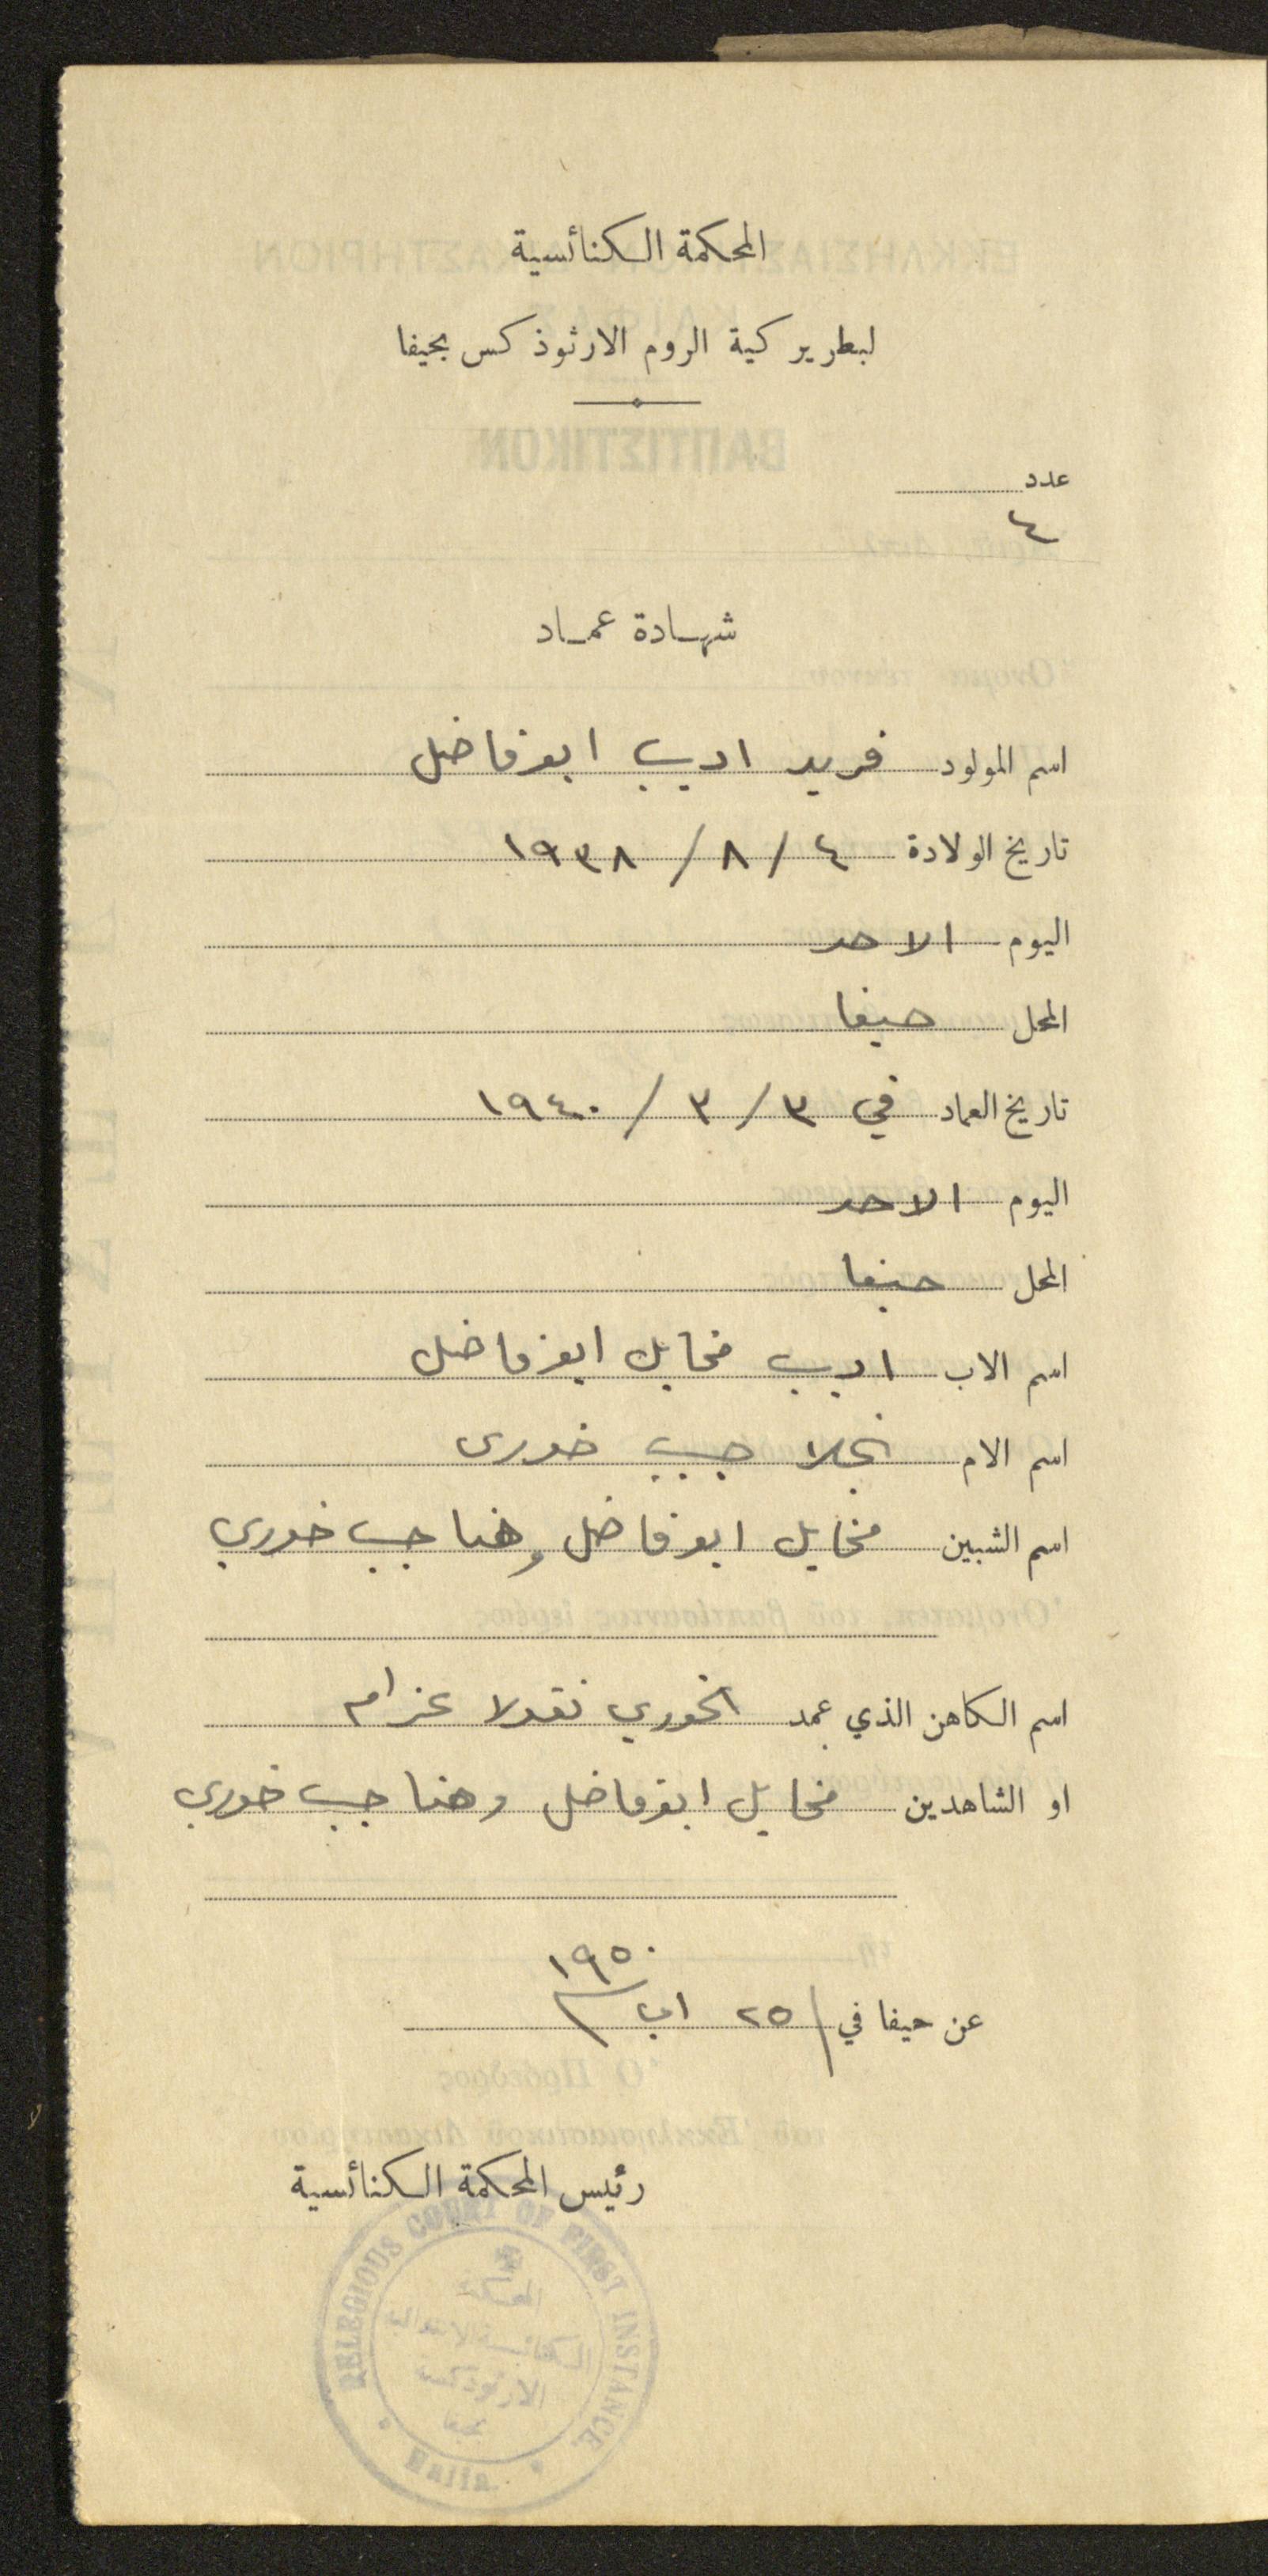 المحكمة الكنائسية
لبطريركية الروم الارثوذكس بحيفا
عدد
٤
شهادة عماد
اسم المولود فريد اديب ابو فاضل
تاريخ الولادة ٤ / ٨ / ١٩٣٨
اليوم الاحد
المحل حيفا
تاريخ العماد في ٣ / ٣ / ١٩٤٠
اليوم الاحد
المحل حيفا
اسم الاب اديب مخايل ابو فاضل
اسم الام نجلا حبيب خورى
اسم الشبين مخايل ابو فاضل وحنا حبيب خوري
اسم الكاهن الذي عمد الخوري نقولا عزام
او الشاهدين مخايل ابو فاضل وحنا حبيب خوري
عن حيفا في ٢٥ اب ١٩٥٠
رئيس المحكمة الكنائسية
RELEGIOUS COURT OF FIRST INSTANCE
المحكمة
الكنائسية الابتدائية
الارثوذكسية
بحيفا
Haifa